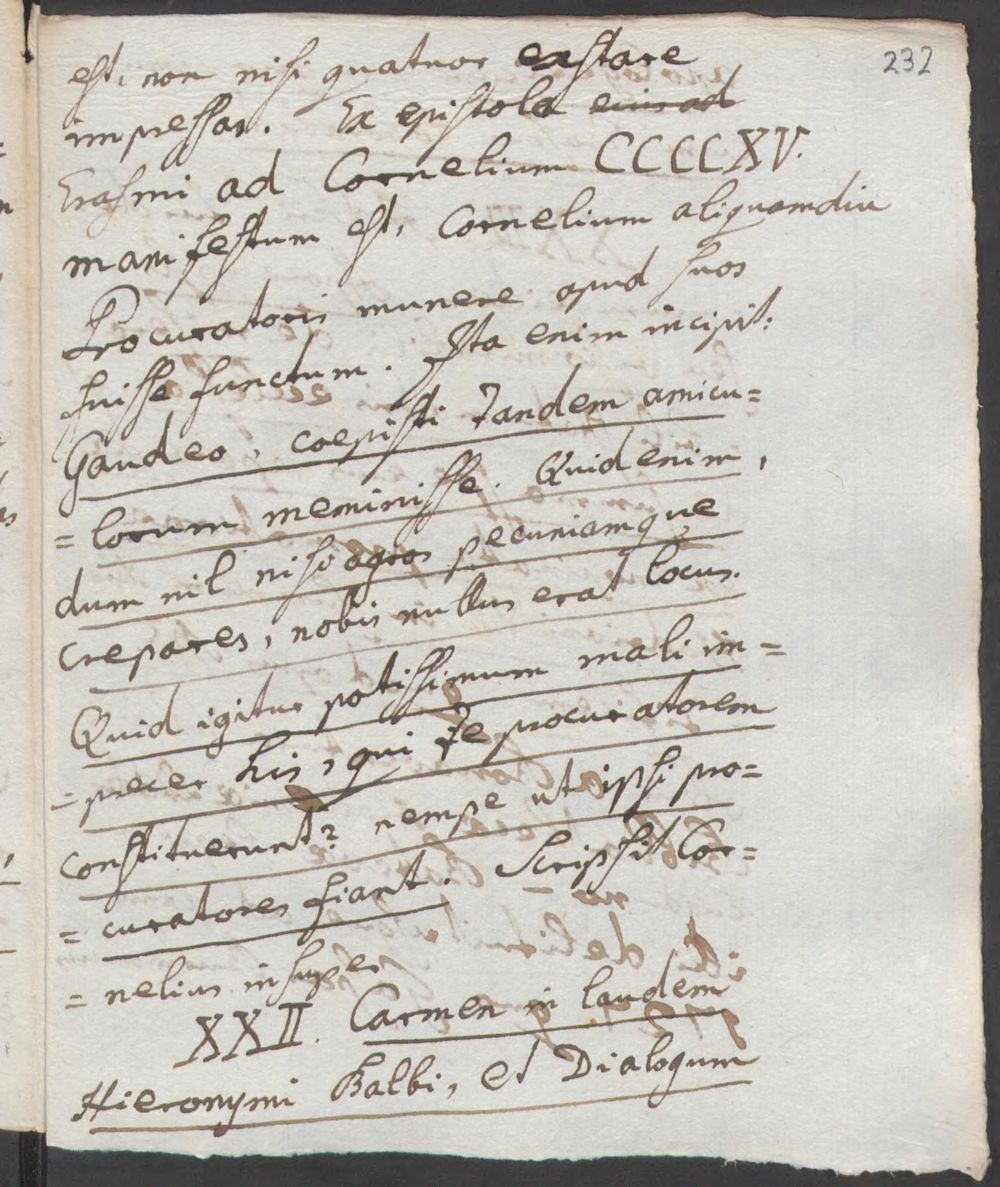 232
est, non nisi quatuor exstare
impressas. Ex epistola eius ad
Erasmi ad Cornelium CCCCXV.
manifestum est, Cornelium aliquamdiu
Procuratoris munere apud suos
fuisse functum. Ita enim incipit:
Gaudeo, coepisti tandem amicu=
=lorum meminisse. Quid enim,
dum nil nisi agros pecuniamque
crepares, nobis nullus erat locus.
Quid igitur potissimum mali im=
=precer his, qui te procuratorem
constituerunt? nempe ut ipsi pro=
=curatores fiant. Scripsit Cor=
=nelius insuper
XXII. Carmen in laudem
Hieronymi Balbi, et Dialogum